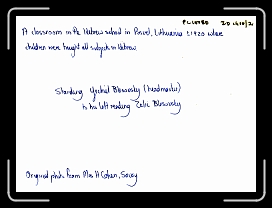 PL10780 20
A classroom in the Hebrew school in Posvel, Lithuania c1920 where
children were taught all subjects in Hebrew.
Standing Yechiel Blowosky (headmaster)
to his left reading Zelic Blowosky
Original photo from Mrs H Cohen, Savoy